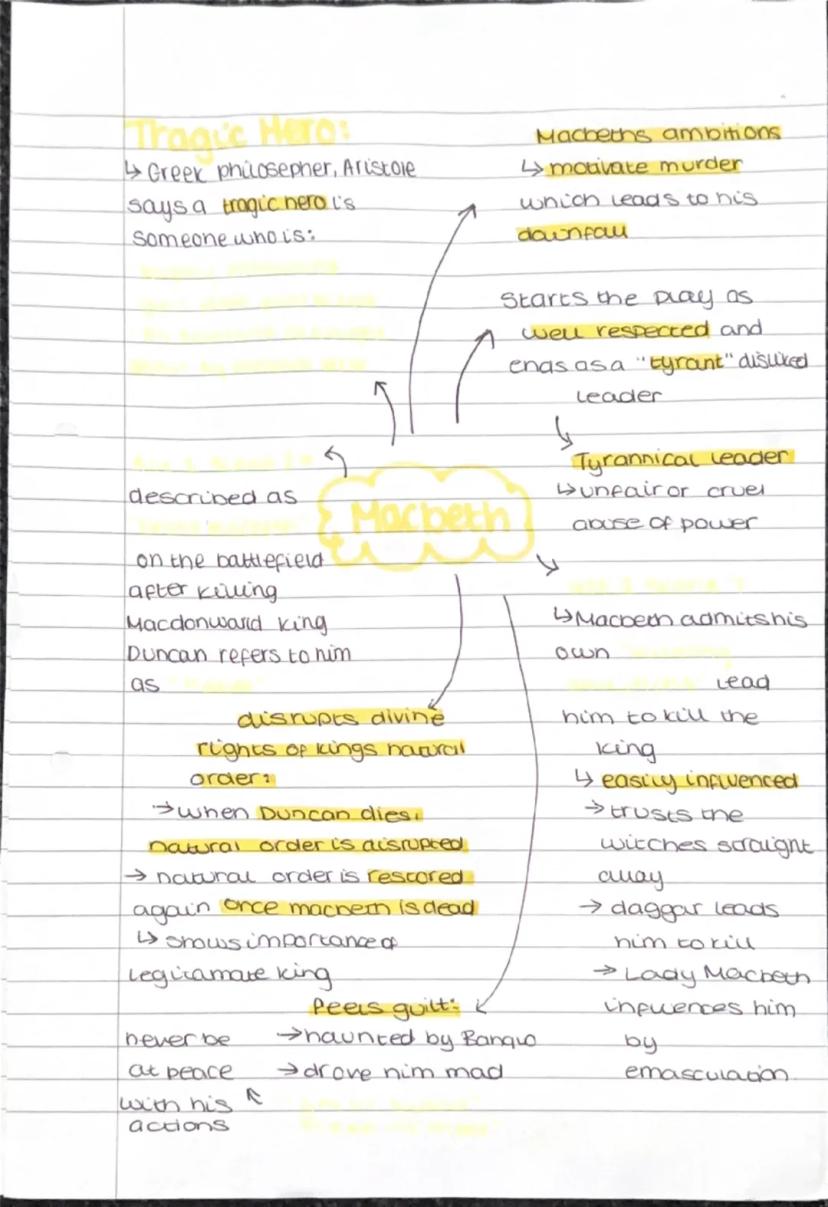 Tragic Hero:
↳ Greek philosepher, Aristole
says a tragic hero is
someone who is:
Macbeths ambitions
↳ motivate murder
which leads to his
downfall
Starts the play as
well respected and
ends as a "tyrant" disliked
leader
Tyrannical leader
↳ unfair or cruel
abuse of power
Macbeth
described as
on the battlefield
after killing
Macdonward king
Duncan refers to him
as
↳ Macbeth admits his
own
lead
him to kill the
king
↳ easily influenced
→ trusts the
witches straight
away
→ daggar leads
him to kill
→ Lady Macbeth
influences him
by
emasculation
disrupts divine
rights of kings natural
order:
→ when Duncan dies,
natural order is disrupted
→ natural order is restored
again once macbeth is dead
↳ shows importance of
legitamate king
Feels guilt:
→ haunted by Banquo
→ drove him mad
never be
at peace
with his
actions